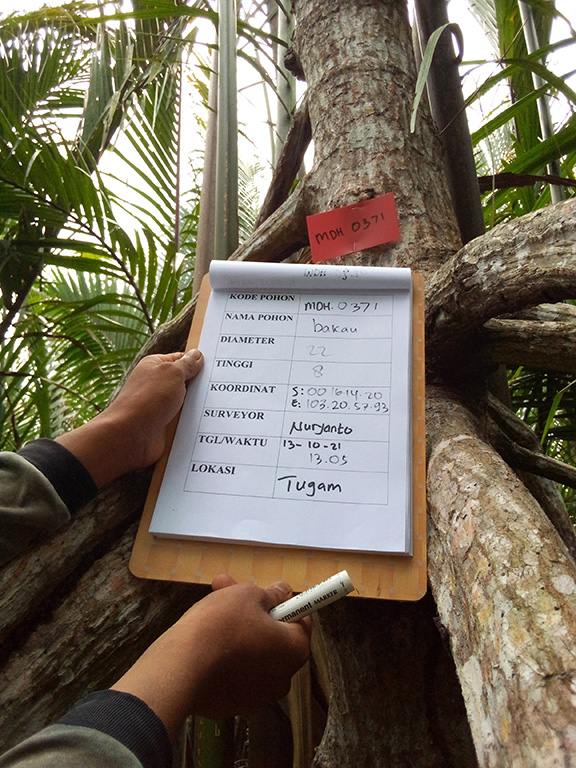 MDH 0371
KODE POHON MDH.0371
NAMA POHON bakau
DIAMETER 22
TINGGI 8
KOORDINAT S:00 16.14.20
E:103.20.57.93
SURVEYOR Nuryanto
TGL/WAKTU 13-10-21
13.05
LOKASI Tugam
Permanent MARKER